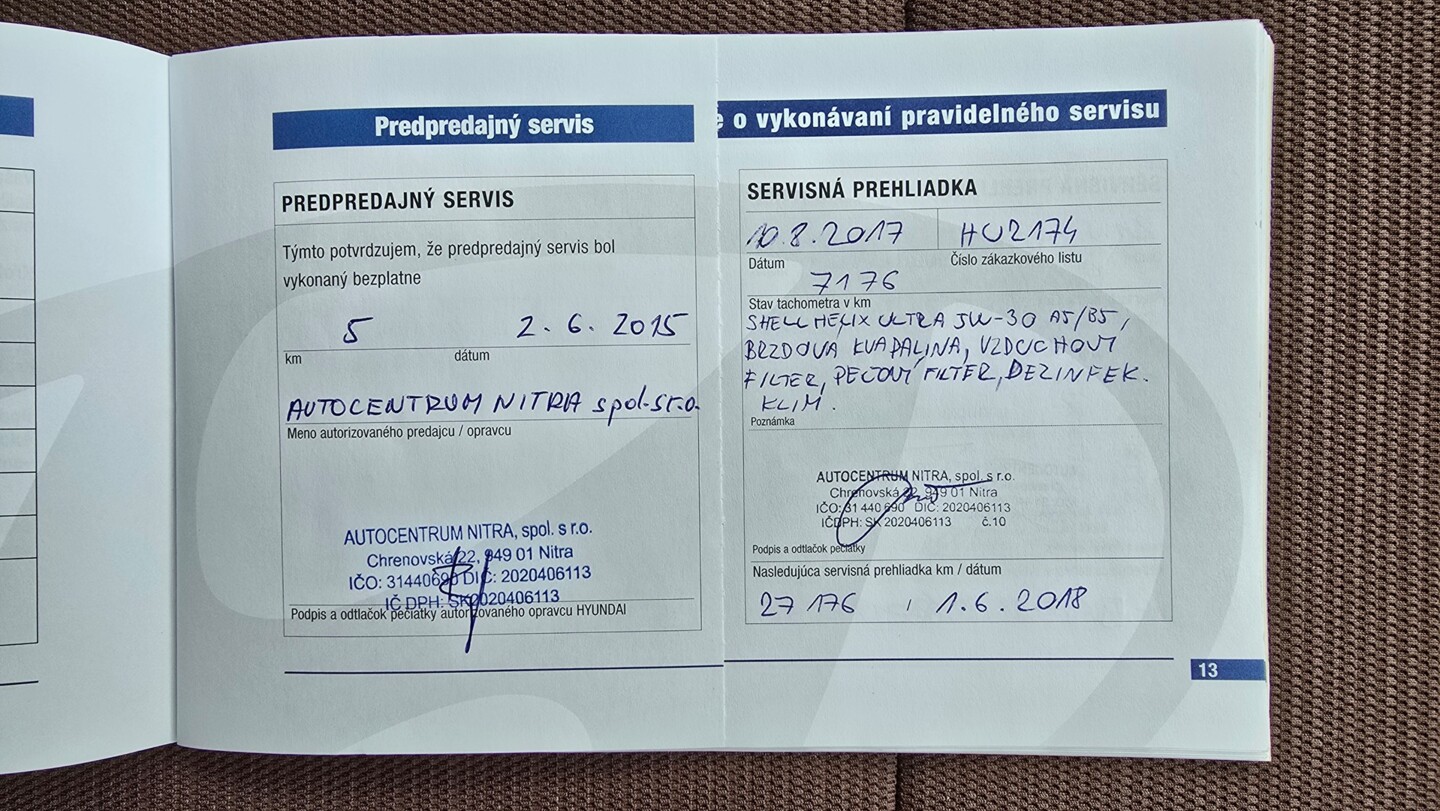 Predpredajný servis
PREDPREDAJNÝ SERVIS
Týmto potvrdzujem, že predpredajný servis bol
vykonaný bezplatne
5 2. 6. 2015
km dátum
AUTOCENTRUM NITRA spol. s r.o.
Meno autorizovaného predajcu / opravcu
AUTOCENTRUM NITRA, spol. s r.o.
Chrenovská 22, 949 01 Nitra
IČO: 31440690 DIČ: 2020406113
IČ DPH: SK2020406113
Podpis a odtlačok pečiatky autorizovaného opravcu HYUNDAI
o vykonávaní pravidelného servisu
SERVISNÁ PREHLIADKA
10.8.2017 HU2174
Dátum Číslo zákazkového listu
7176
Stav tachometra v km
SHELL HELIX ULTRA 5W-30 A5/B5,
BRZDOVA KVAPALINA, VZDUCHOVÝ
FILTER, PEĽOVÝ FILTER, DEZINFEK.
KLIM.
Poznámka
AUTOCENTRUM NITRA, spol. s r.o.
Chrenovská 22, 949 01 Nitra
IČO: 31 440 690 DIČ: 2020406113
IČDPH: SK 2020406113 č.10
Podpis a odtlačok pečiatky
Nasledujúca servisná prehliadka km / dátum
27 176 / 1. 6. 2018
13